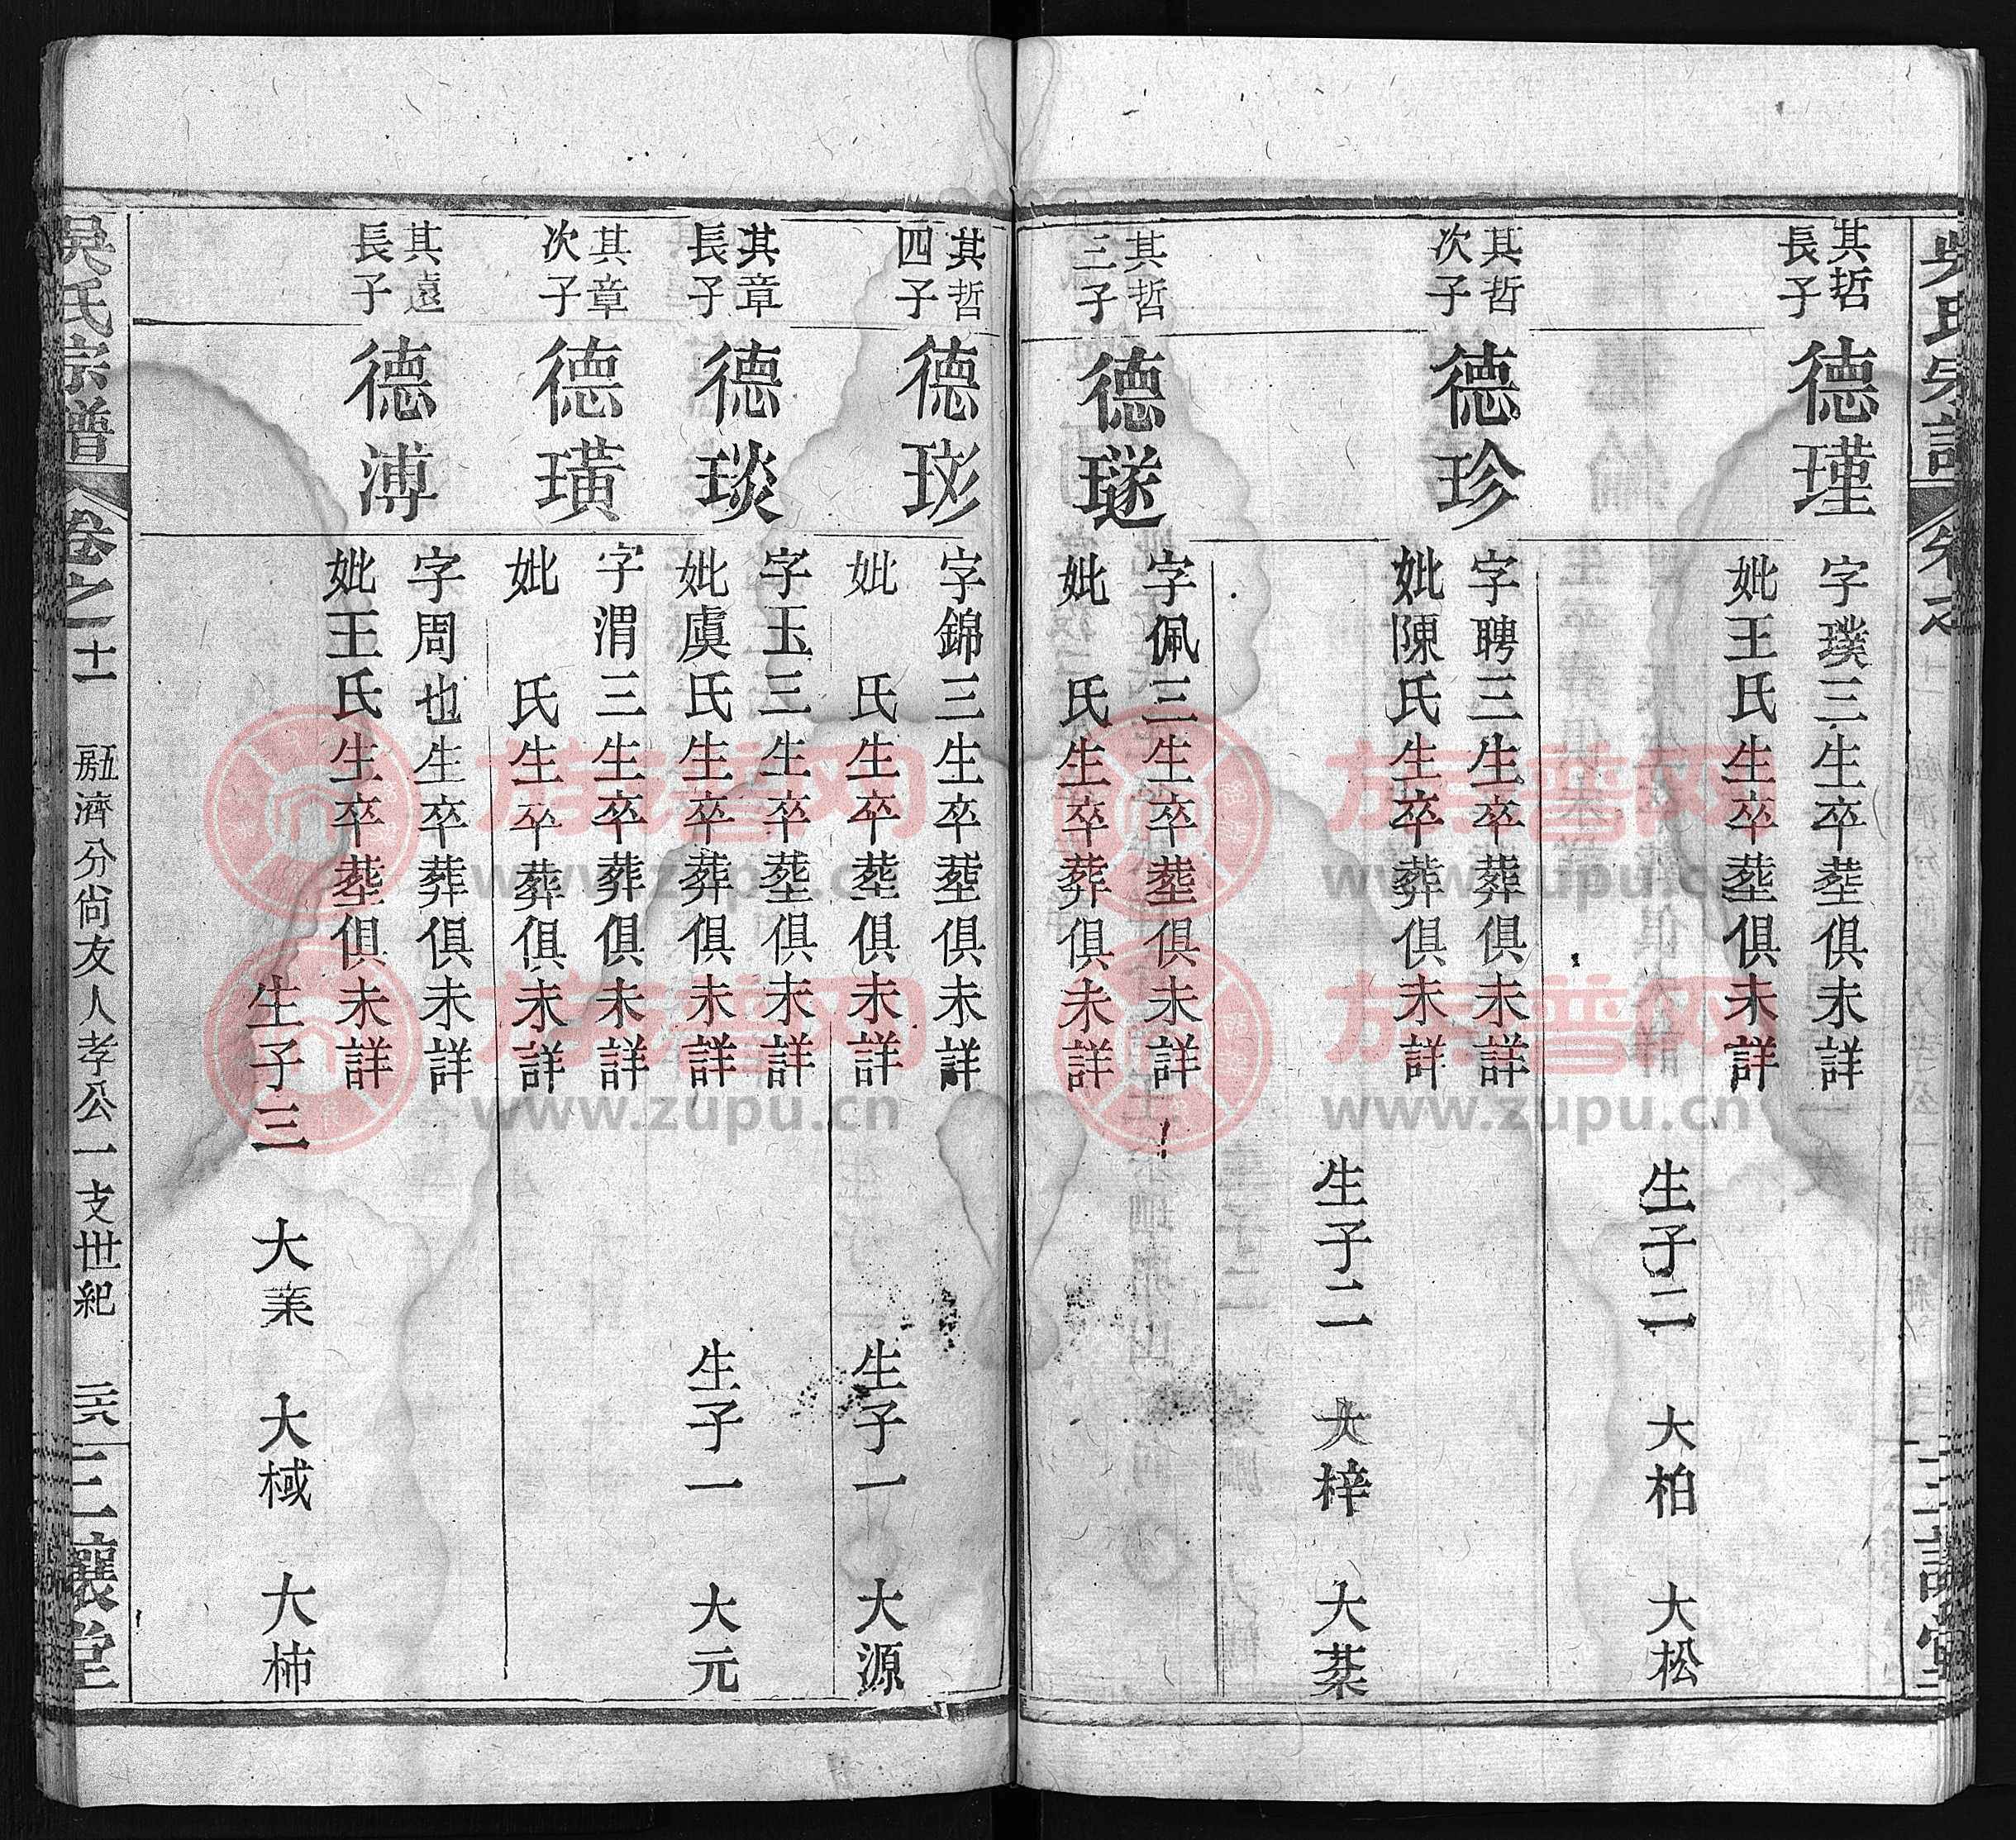 吳氏宗譜
三讓堂
其哲
長子
德瑾
字璞三生卒塟俱未詳
妣王氏生卒塟俱未詳
生子二 大柏 大松
其哲
次子
德珍
字聘三生卒葬俱未詳
妣陳氏生卒葬俱未詳
生子二 大梓 大棻
其哲
三子
德璲
字佩三生卒塟俱未詳
妣 氏生卒葬俱未詳
其哲
四子
德玅
字錦三生卒塟俱未詳
妣 氏生卒塟俱未詳
生子一 大源
其章
長子
德琰
字玉三生卒塟俱未詳
妣虞氏生卒葬俱未詳
生子一 大元
其章
次子
德璜
字渭三生卒葬俱未詳
妣 氏生卒葬俱未詳
其遠
長子
德溥
字周也生卒葬俱未詳
妣王氏生卒塟俱未詳
生子三 大業 大棫 大柿
吳氏宗譜 卷之十一 濟分尙友人孝公一支世紀 二六 三讓堂
族譜网
www.zupu.cn
族譜网
www.zupu.cn
族譜网
www.zupu.cn
族譜网
www.zupu.cn